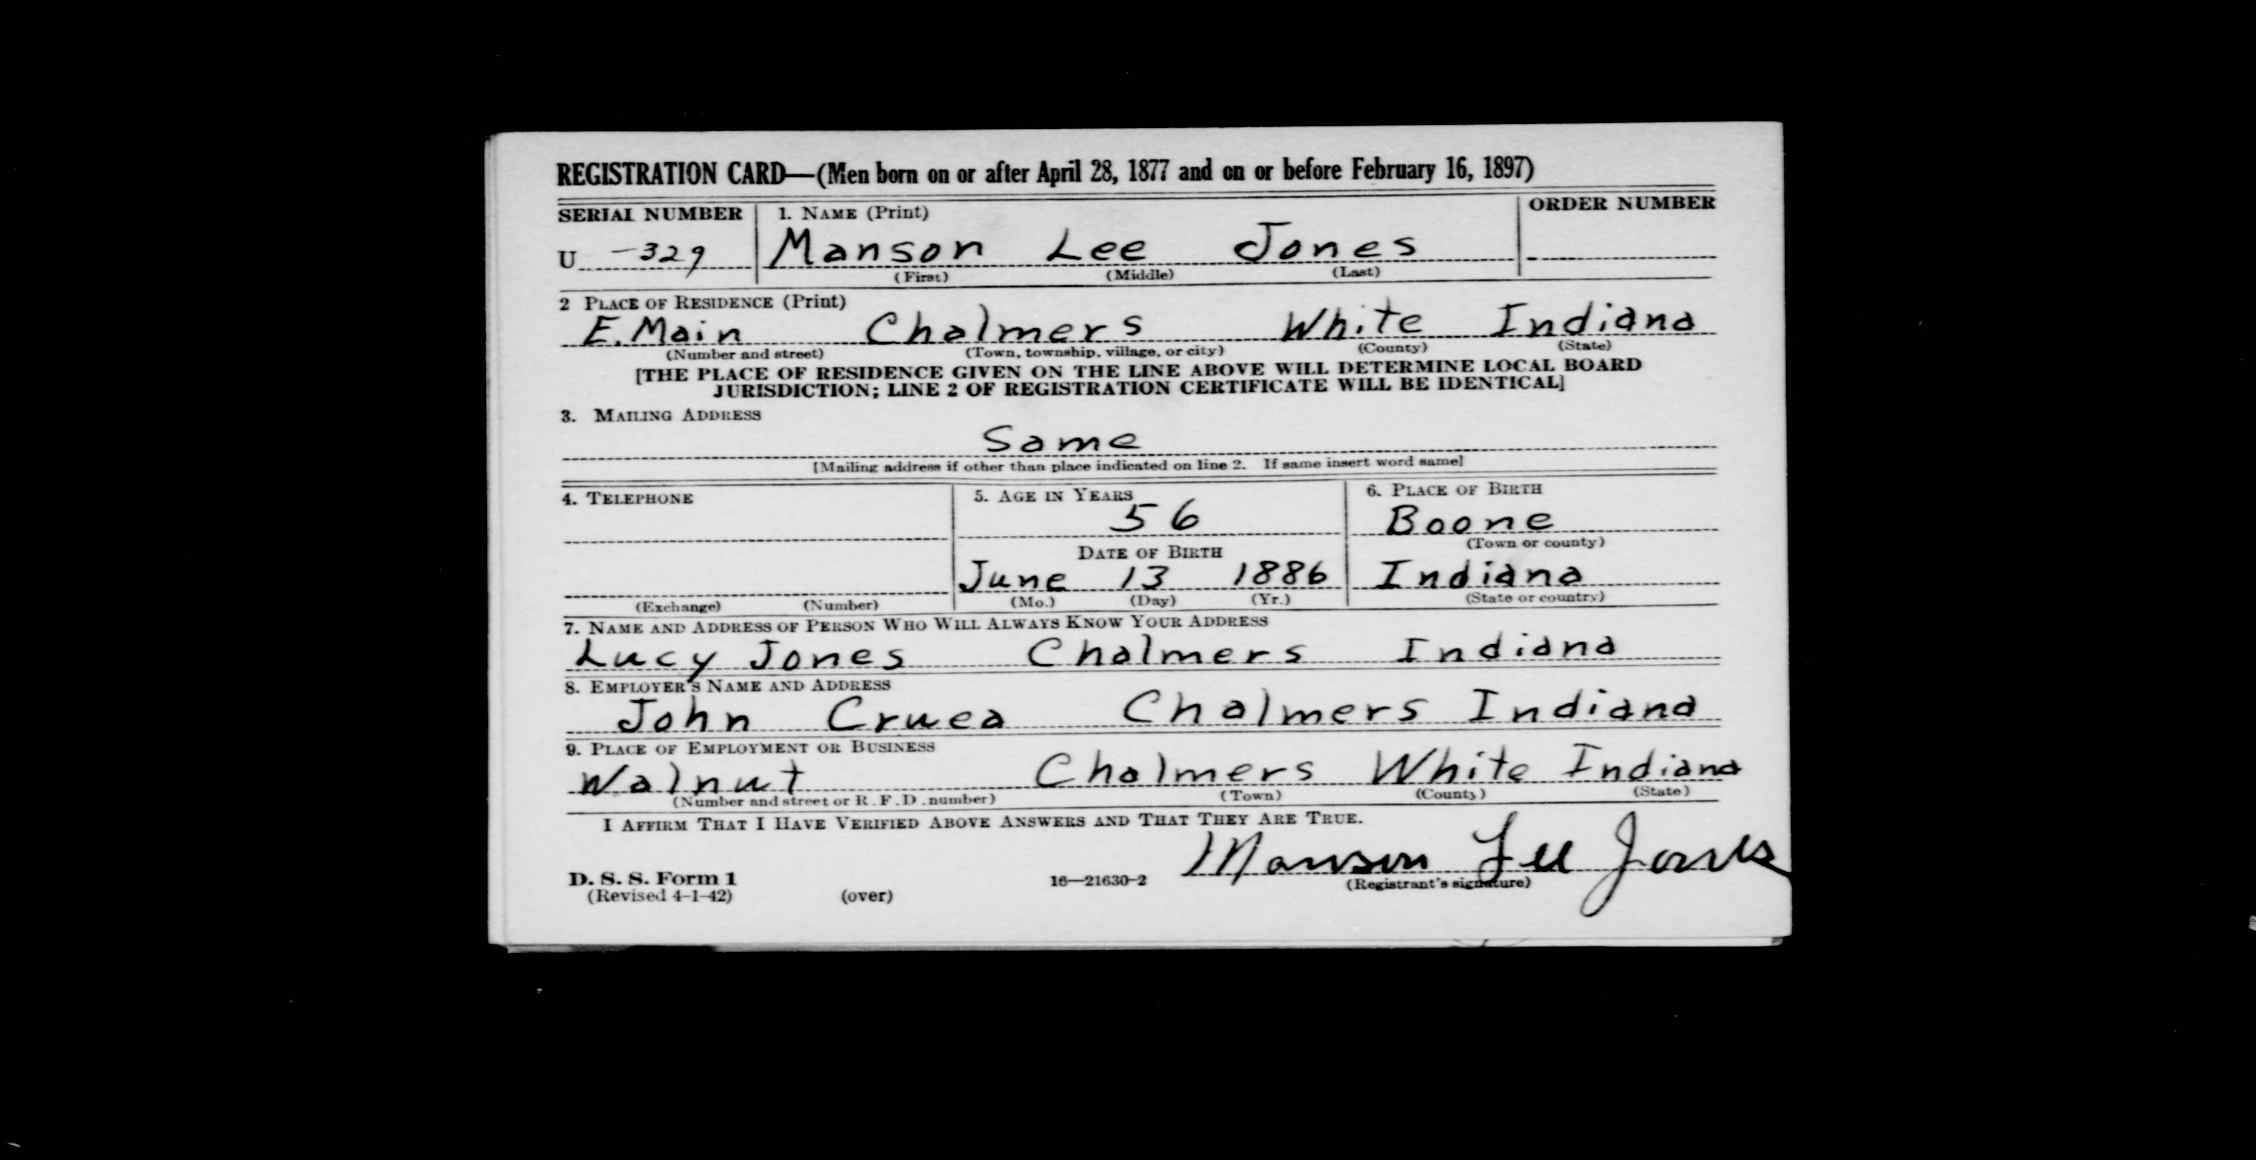 REGISTRATION CARD—(Men born on or after April 28, 1877 and on or before February 16, 1897)
SERIAL NUMBER 1. NAME (Print) ORDER NUMBER
U -329 Manson Lee Jones
(First) (Middle) (Last)
2 PLACE OF RESIDENCE (Print)
E. Main Chalmers White Indiana
(Number and street) (Town, township, village, or city) (County) (State)
[THE PLACE OF RESIDENCE GIVEN ON THE LINE ABOVE WILL DETERMINE LOCAL BOARD
JURISDICTION; LINE 2 OF REGISTRATION CERTIFICATE WILL BE IDENTICAL]
3. MAILING ADDRESS
Same
[Mailing address if other than place indicated on line 2. If same insert word same]
4. TELEPHONE 5. AGE IN YEARS 6. PLACE OF BIRTH
56 Boone
(Town or county)
DATE OF BIRTH
June 13 1886 Indiana
(Exchange) (Number) (Mo.) (Day) (Yr.) (State or country)
7. NAME AND ADDRESS OF PERSON WHO WILL ALWAYS KNOW YOUR ADDRESS
Lucy Jones Chalmers Indiana
8. EMPLOYER'S NAME AND ADDRESS
John Cruea Chalmers Indiana
9. PLACE OF EMPLOYMENT OR BUSINESS
Walnut Chalmers White Indiana
(Number and street or R. F. D. number) (Town) (County) (State)
I AFFIRM THAT I HAVE VERIFIED ABOVE ANSWERS AND THAT THEY ARE TRUE.
Manson Lee Jones
D. S. S. Form 1 16—21630-2 (Registrant's signature)
(Revised 4-1-42) (over)